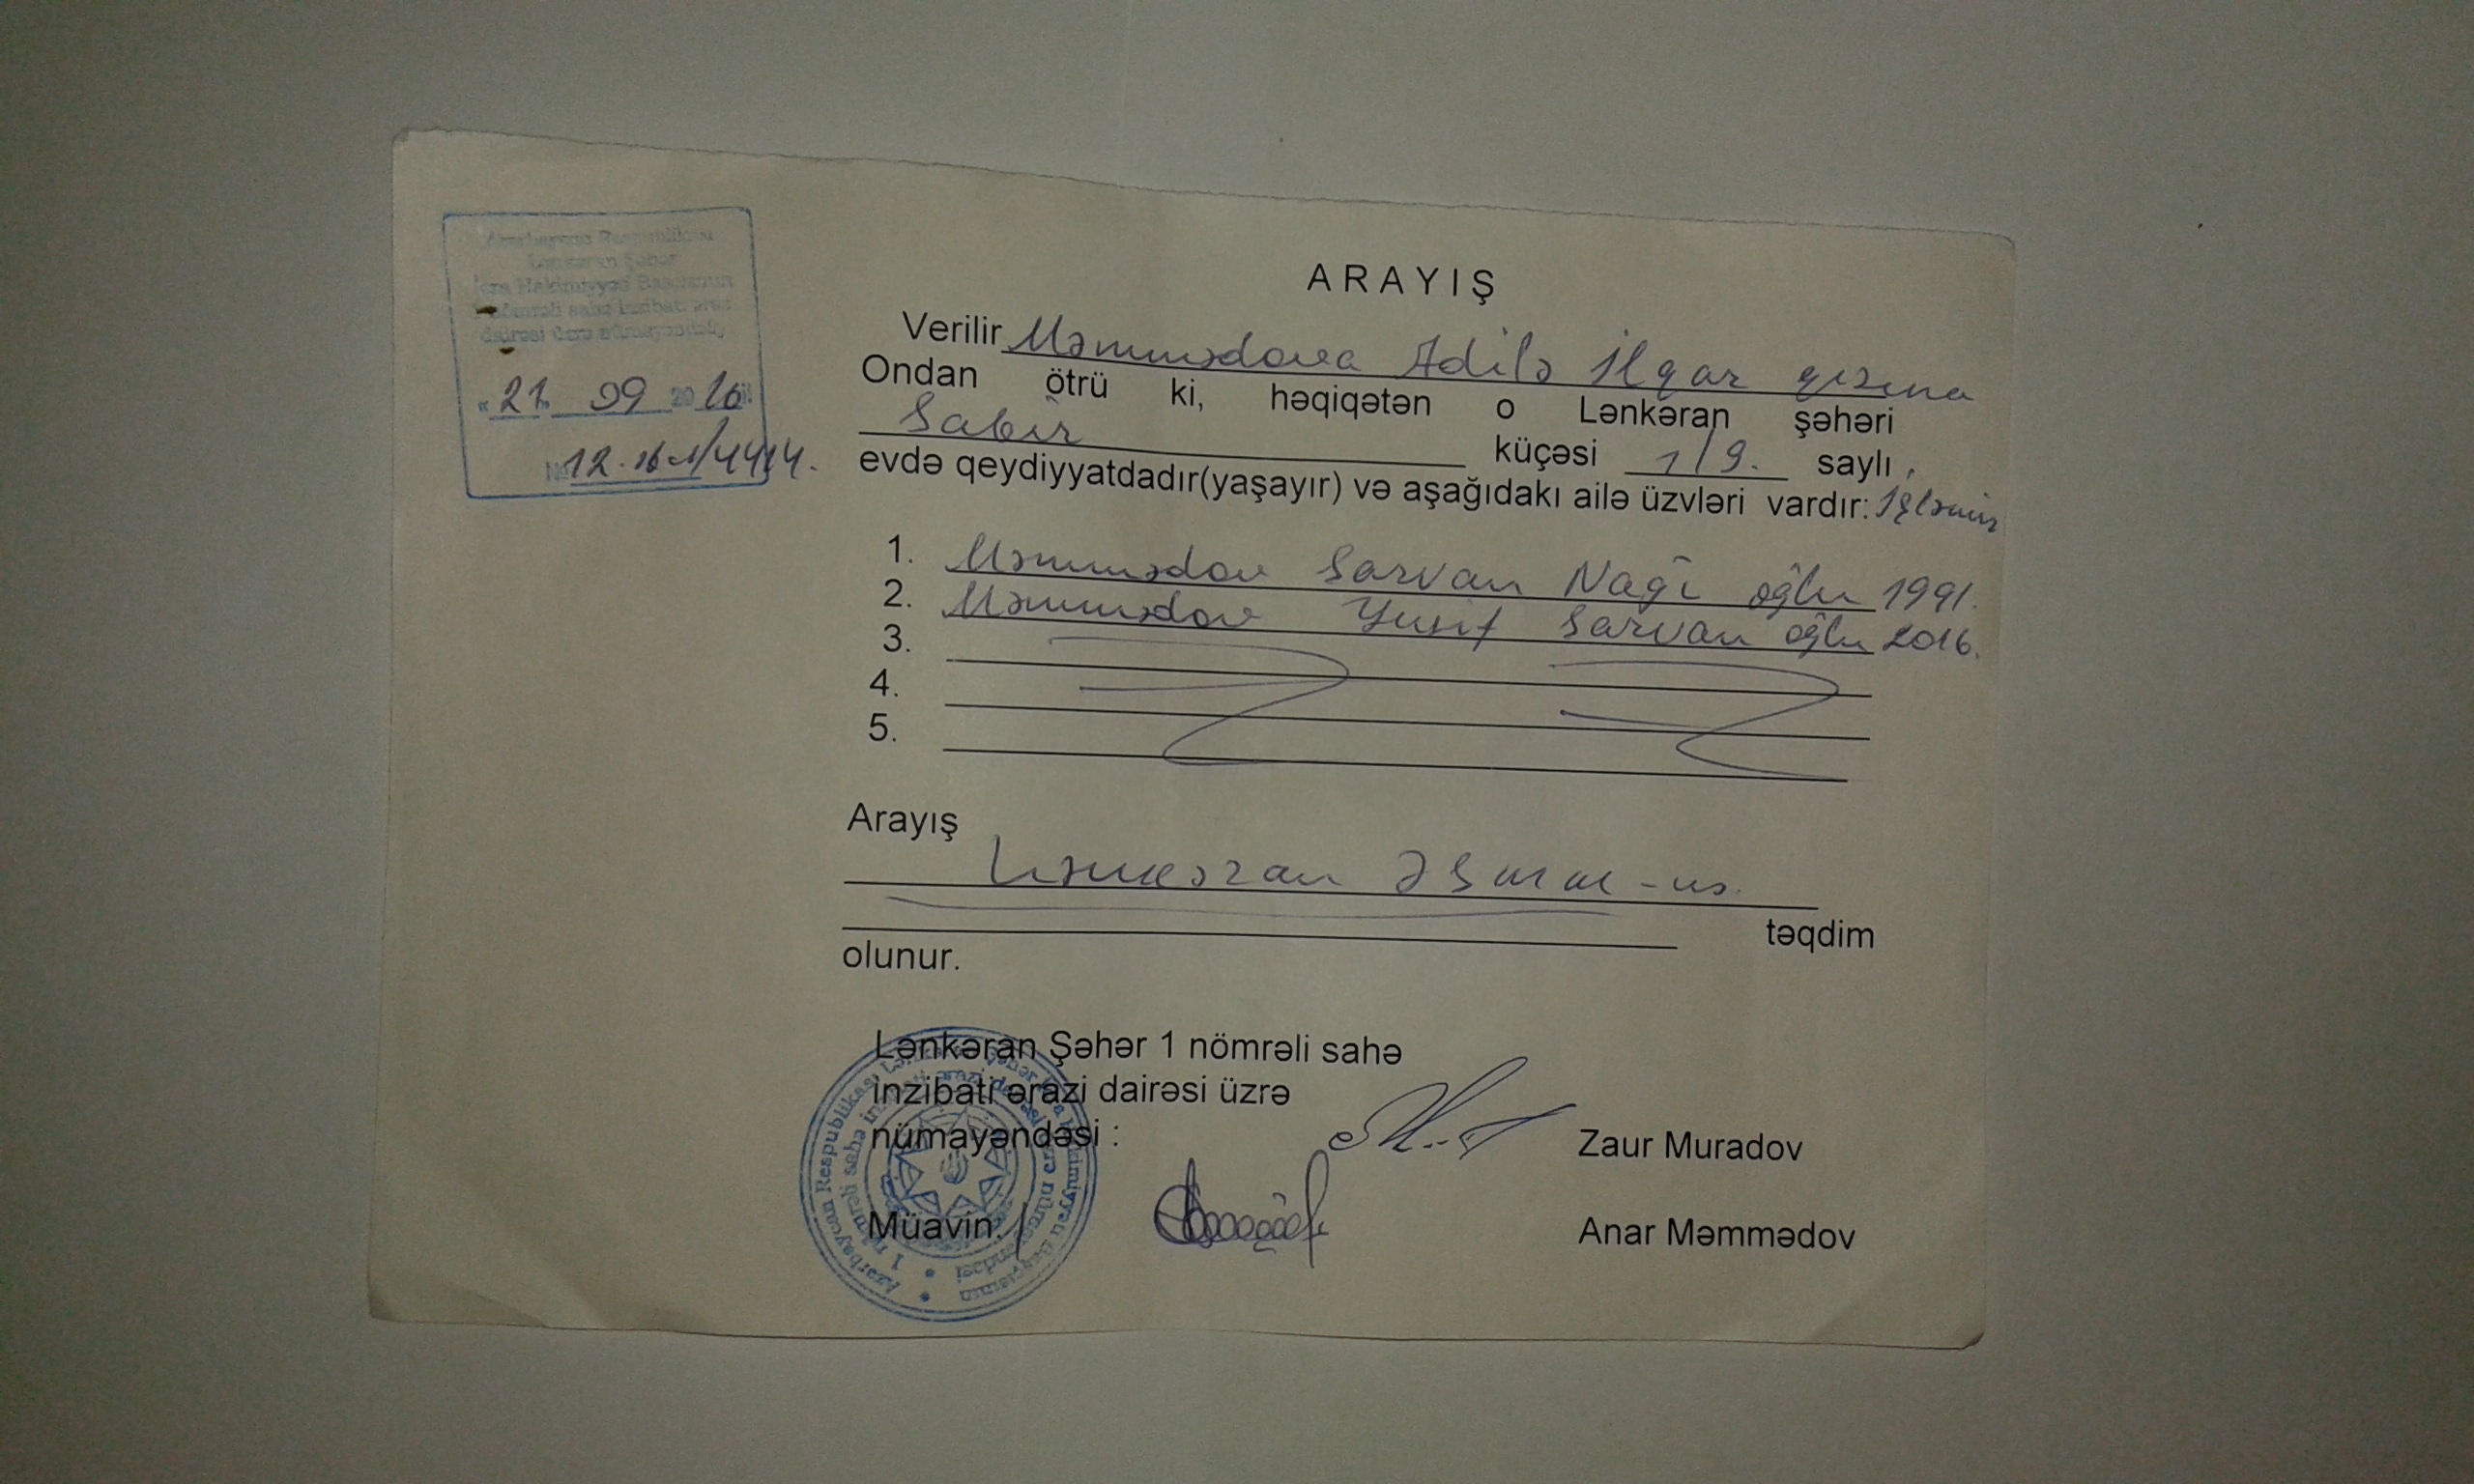 Azərbaycan Respublikası
Lənkəran Şəhər
İcra Hakimiyyəti Başçısının
nömrəli sahə inzibati ərazi
dairəsi üzrə nümayəndəliyi
« 21 » 09 2016 il
№ 12-16-1/4414.
ARAYIŞ
Verilir Məmmədova Adilə İlqar qızına
Ondan ötrü ki, həqiqətən o Lənkəran şəhəri
Sabir küçəsi 1/9. saylı
evdə qeydiyyatdadır(yaşayır) və aşağıdakı ailə üzvləri vardır: İşləmir
1. Məmmədov Sarvan Nağı oğlu 1991.
2. Məmmədov Yusif Sarvan oğlu 2016.
3.
4.
5.
Arayış
Lənkəran ƏSMM-nə
təqdim
olunur.
Lənkəran Şəhər 1 nömrəli sahə
inzibati ərazi dairəsi üzrə
nümayəndəsi :
Zaur Muradov
Müavin:
Anar Məmmədov